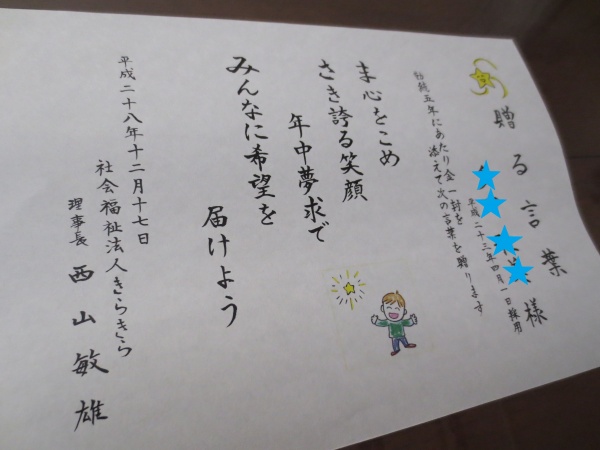 贈る言葉
様
平成二十三年四月一日採用
勤続五年にあたり金一封を
添えて次の言葉を贈ります
ま心をこめ
さき誇る笑顔
年中夢求で
みんなに希望を
届けよう
平成二十八年十二月十七日
社会福祉法人きらきら
理事長 西山敏雄